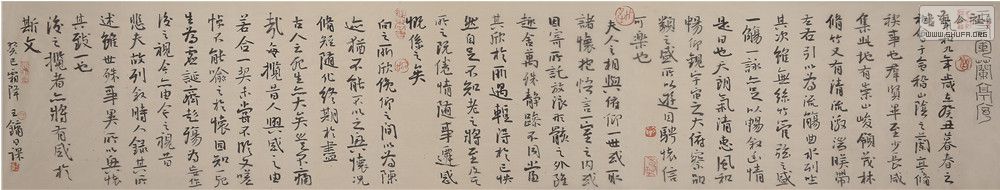 蘭亭序
和九年歲在癸丑暮春之
初會于會稽山陰之蘭亭脩
禊事也群賢畢至少長咸
集此地有崇山峻領茂林
脩竹又有清流激湍暎帶
左右引以為流觴曲水列坐
其次雖無絲竹管弦之盛
一觴一詠亦足以暢敘幽情
是日也天朗氣清惠風和
暢仰觀宇宙之大俯察品
類之盛所以遊目騁懷信
可樂也
夫人之相與俯仰一世或取
諸懷抱悟言一室之内或
因寄所託放浪形骸之外雖
趣舍萬殊靜躁不同當
其欣於所遇輕得於己快
然自足不知老之將至及其
所之既惓情隨事遷感
慨係之矣
向之所欣俛仰之間以為陳
迹猶不能不以之興懷況
脩短隨化終期於盡
古人云死生亦大矣豈不痛
哉每攬昔人興感之由
若合一契未嘗不臨文嗟
悼不能喻之於懷固知一死
生為虛誕齊彭殤為妄作
後之視今亦由今之視昔
悲夫故列敘時人錄其所
述雖世殊事異所以興懷
其致一也
後之攬者亦將有感於
斯文
癸巳霜降 王鏞日課
WWW.SHUFA.ORG